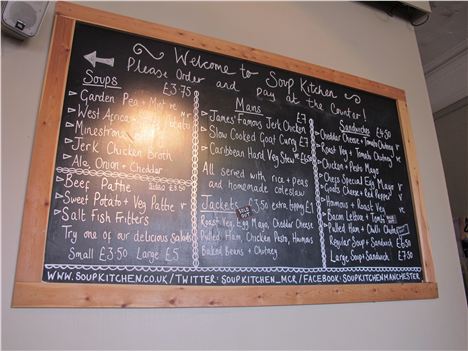 Welcome to Soup Kitchen
Please Order and pay at the Counter!
Soups £3.75
Garden Pea + Mint
West African Potato
Minestrone
Jerk Chicken Broth
Ale, Onion + Cheddar
Beef Pattie
Sweet Potato + Veg Pattie v
Salt Fish Fritters
Try one of our delicious Salads
Small £3.50 Large £5
Mains
James' Famous Jerk Chicken £7
Slow Cooked Goat Curry £7
Caribbean Hard Veg Stew
All served with rice + peas
and homemade coleslaw
Jackets £3.50 extra topping £1
Roast Veg, Egg Mayo, Cheddar Cheese
Pulled Ham, Chicken Pesto, Houmous
Baked Beans + Chutney
Sandwiches £4.50
Cheddar Cheese + Tomato Chutney v
Roast Veg + Tomato Chutney
Chicken + Pesto Mayo
Chefs Special Egg Mayo v
Goats Cheese + Red Pepper v
Houmous + Roast Veg
Bacon Lettuce + Tomato
Pulled Ham + Chilli Chutney
Regular Soup + Sandwich £6.50
Large Soup + Sandwich £7.50
WWW.SOUPKITCHEN.CO.UK/TWITTER-SOUPKITCHEN_MCR/FACEBOOK-SOUPKITCHENMANCHESTER